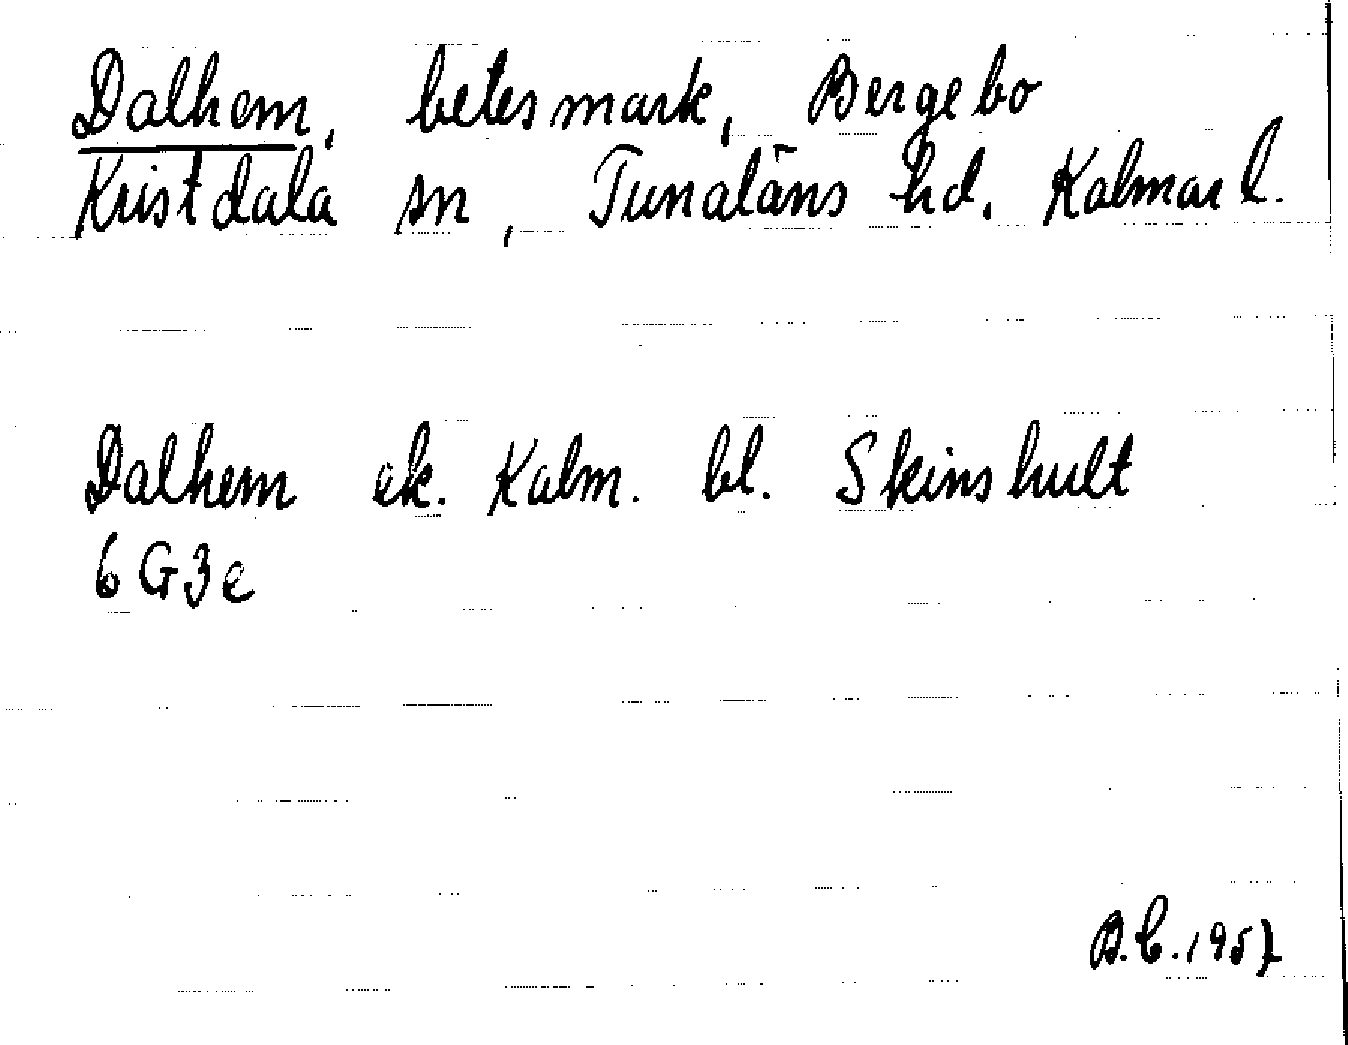 Dalhem, betesmark, Bergebo
Kristdala sn, Tunaläns hd. Kalmar l.
Dalhem ek. Kalm. bl. Skinshult
6G3e
B.C. 1957